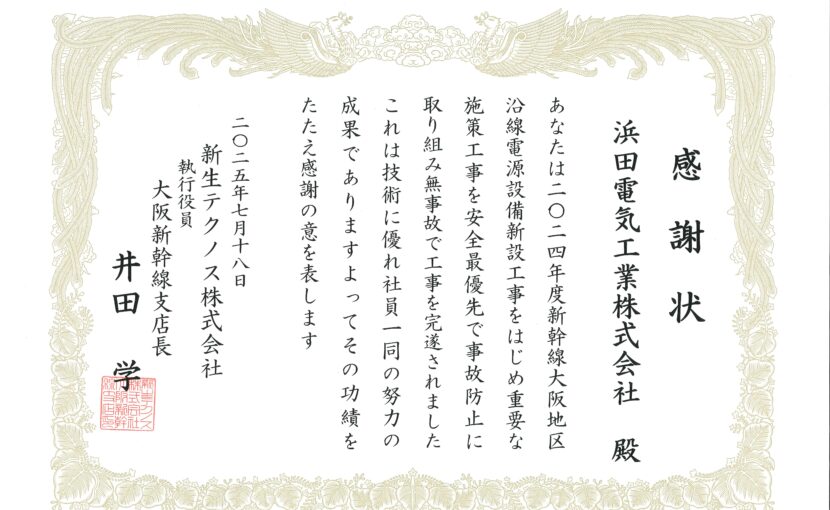 感謝状
浜田電気工業株式会社 殿
あなたは二〇二四年度新幹線大阪地区
沿線電源設備新設工事をはじめ重要な
施策工事を安全最優先で事故防止に
取り組み無事故で工事を完遂されました
これは技術に優れ社員一同の努力の
成果でありますよってその功績を
たたえ感謝の意を表します
二〇二五年七月十八日
新生テクノス株式会社
執行役員
大阪新幹線支店長
井田 学